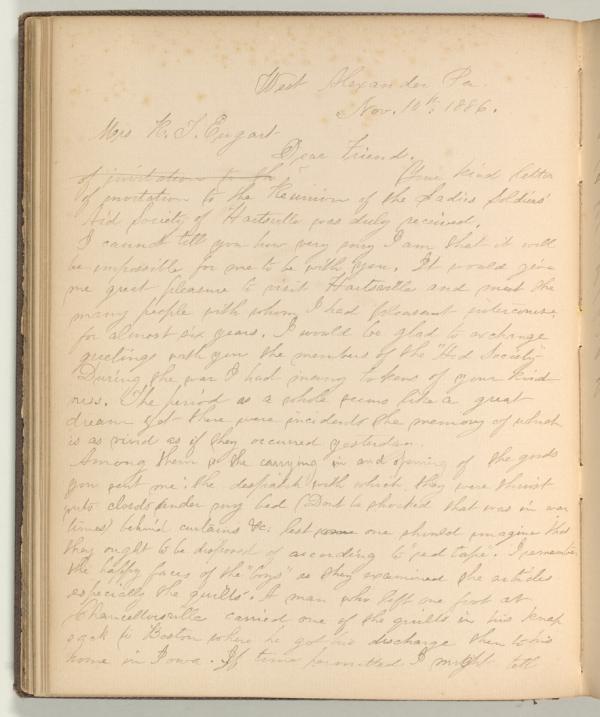 West Alexander Pa.
Nov. 10th, 1886.
Mrs H. T. Engart
Dear Friend.
of invitation to the Your kind letter
of invitation to the Reunion of the Ladies Soldiers'
Aid Society of Hartsville was duly received.
I cannot tell you how very sorry I am that it will
be impossible for me to be with you. It would give
me great pleasure to visit Hartsville and meet the
many people with whom I had pleasant intercourse
for almost six years. I would be glad to exchange
greetings with you the members of the "Aid Society"
During the war I had many tokens of your kind-
ness. The period as a whole seems like a great
dream yet there were incidents the memory of which
is as vivid as if they occurred yesterday.
Among them is the carrying in and opening of the goods
you sent me: the despatch with which they were thrust
into closets under my bed (Dont be shocked that was in war
times) behind curtains &c: lest some one should imagine that
they ought to be disposed of according to "red tape". I remember
the happy faces of the "boys" as they examined the articles
especially the quilts. A man who left one foot at
Chancellorsville carried one of the quilts in his knap
sack to Boston where he got his discharge then to his
home in Iowa. If time permitted I might tell